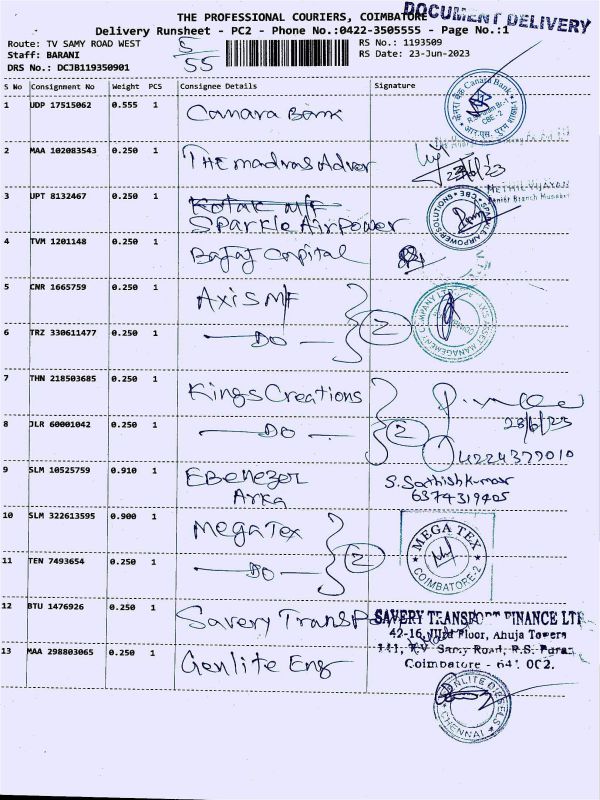 THE PROFESSIONAL COURIERS, COIMBATORE
DOCUMENT DELIVERY
Delivery Runsheet - PC2 - Phone No.:0422-3505555 - Page No.:1
Route: TV SAMY ROAD WEST
5/55
RS No.: 1193509
Staff: BARANI
RS Date: 23-Jun-2023
DRS No.: DCJB119350901
S No Consignment No Weight PCS Consignee Details Signature
1 UDP 17515062 0.555 1 Canara Bank
Canara Bank
CBE-2
2 MAA 102083543 0.250 1 THE madras Adver
23/6/23
3 UPT 8132467 0.250 1 Kotak M/F
Sparkle AirPower
SPARKLE AIRPOWER SOLUTIONS CBE
Senior Branch
4 TVM 1201148 0.250 1 Bajaj Capital
5 CNR 1665759 0.250 1 Axis MF
2
6 TRZ 330611477 0.250 1 DO
7 THN 218503685 0.250 1 Kings Creations
23/6/23
8 JLR 60001042 0.250 1 DO
2
4224379010
9 SLM 10525759 0.910 1 EBenezer
Arka
S. Sathish Kumar
6374319405
10 SLM 322613595 0.900 1 Mega Tex
2
MEGA TEX
COIMBATORE-2
11 TEN 7493654 0.250 1 DO
12 BTU 1476926 0.250 1 Savery Transp
SAVERY TRANSPORT FINANCE LTD
42-16, IIIrd Floor, Ahuja Towers
141, T.V Samy Road, R.S. Puram
Coimbatore - 641 002.
13 MAA 298803065 0.250 1 Genlite Eng
GENLITE DIESELS
CHENNAI